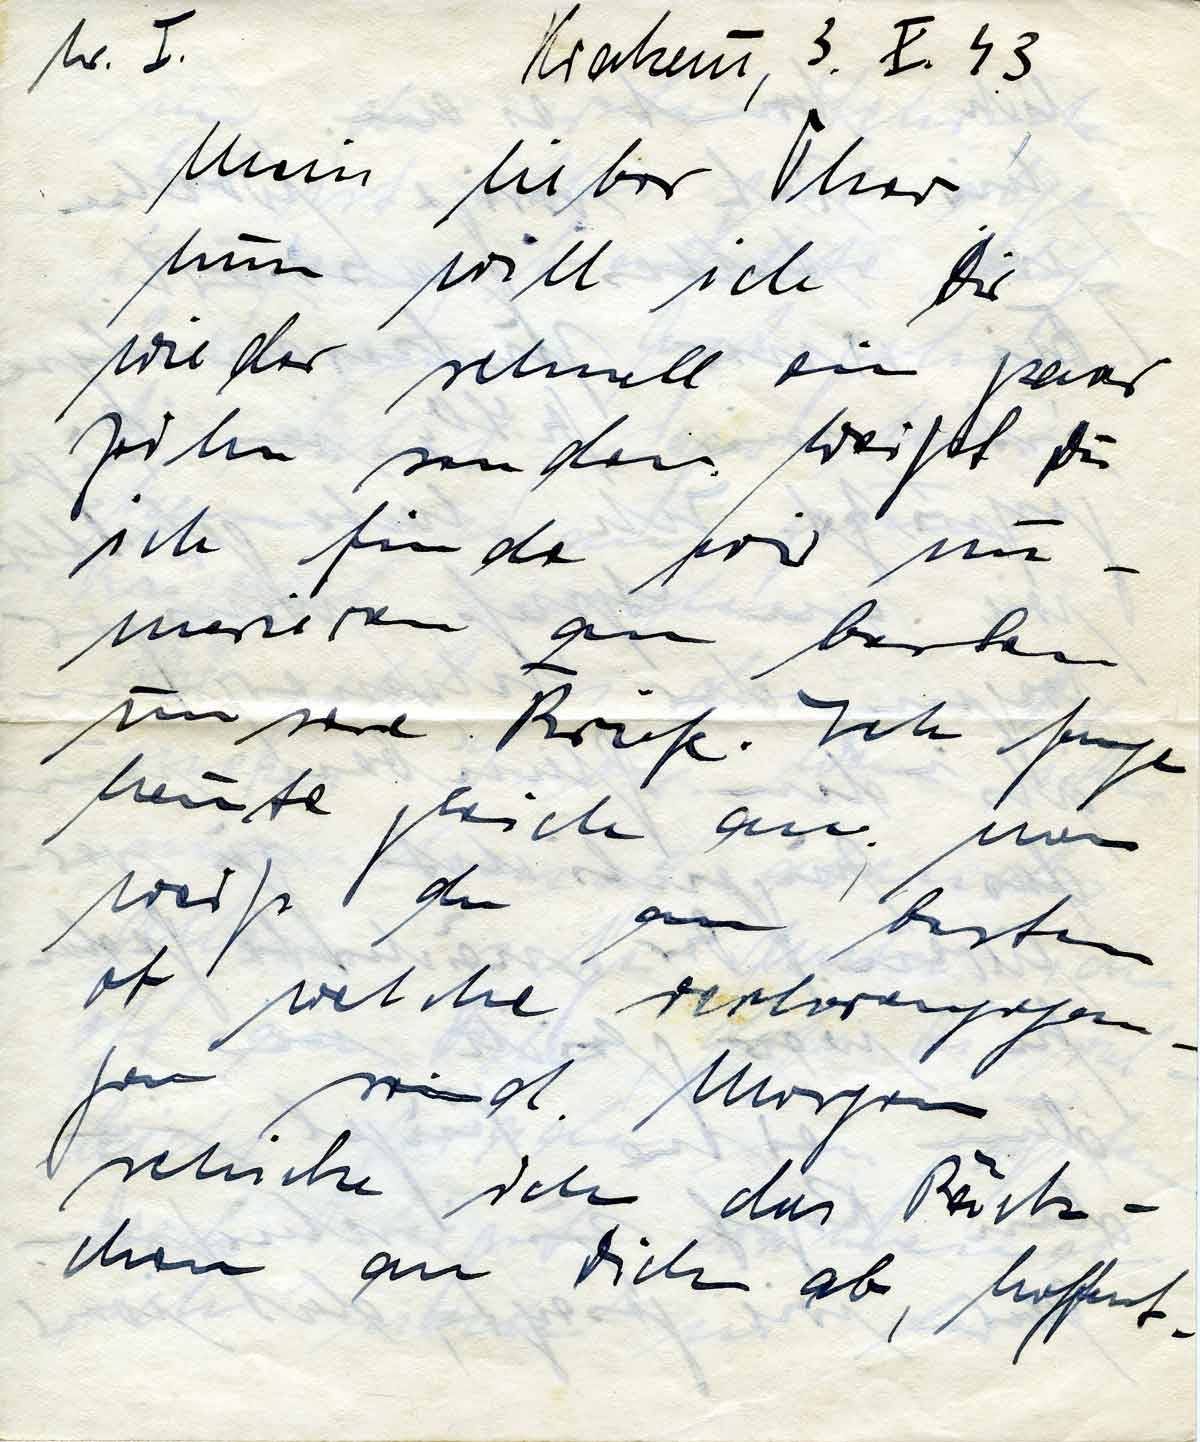 Nr. I. Krakau, 3. X. 43
Mein lieber
nun will ich Dir
wieder schnell ein paar
Zeilen senden. Weißt Du
ich finde wir nu-
merieren am besten
unsere Briefe. Ich fange
heute gleich an, man
weiß da am besten
ob welche verlorengegan-
gen sind. Morgen
schicke ich das Päck-
chen an Dich ab, hoffent-